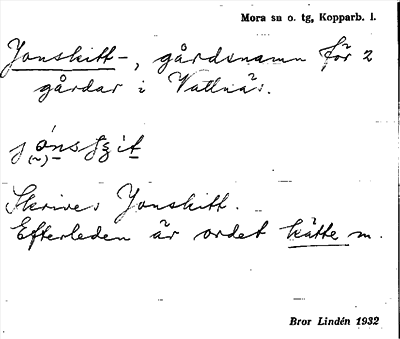 Mora sn o. tg, Kopparb. l.
Jonskitt-, gårdsnamn för 2
gårdar i Vattnäs.
Skrives Jonskitt.
Efterleden är ordet kätte m.
Bror Lindén 1932